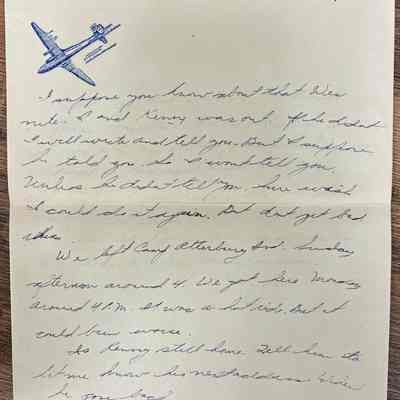 I suppose you know about that Wed
nite. I and Kenny was out. If he didnt
I will write and tell you. But I suppose
he told you. So I wont tell you.
Unless he didn't tell you. Sure wish
I could do it again. But dont get bad
idea.
We left Camp Atterbury Ind. Sunday
afternoon around 4. We got here Monday
around 4 P.M. It was a hot ride. But it
could been worse.
Is Kenny still home. Tell him to
let me know his next address
be